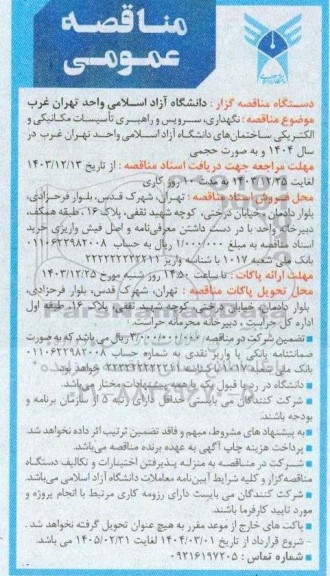 مناقصه
عمومی
دستگاه مناقصه گزار : دانشگاه آزاد اسلامی واحد تهران غرب
موضوع مناقصه : نگهداری، سرویس و راهبری تأسیسات مکانیکی و
الکتریکی ساختمان‌های دانشگاه آزاد اسلامی واحد تهران غرب در
سال ۱۴۰۴ و به صورت حجمی
مهلت مراجعه جهت دریافت اسناد مناقصه : از تاریخ ۱۴۰۳/۱۲/۱۳
لغایت ۱۴۰۳/۱۲/۲۵ به مدت ۱۰ روز کاری
محل فروش اسناد مناقصه : تهران، شهرک قدس، بلوار فرحزادی،
بلوار دادمان، خیابان درختی، کوچه شهید ثقفی، پلاک ۱۶، طبقه همکف،
دبیرخانه واحد با در دست داشتن معرفی‌نامه و اصل فیش واریزی خرید
اسناد مناقصه به مبلغ ۱/۰۰۰/۰۰۰ ریال به حساب ۰۱۱۰۶۲۲۹۸۲۰۰۸
بانک ملی شعبه ۱۰۱۷ با شناسه واریز
مهلت ارائه پاکات : تا ساعت ۱۴:۵۰ روز شنبه مورخ ۱۴۰۳/۱۲/۲۵
محل تحویل پاکات مناقصه : تهران، شهرک قدس، بلوار فرحزادی،
بلوار دادمان، خیابان درختی، کوچه شهید ثقفی، پلاک ۱۶، طبقه اول
اداره کل حراست ، دبیرخانه محرمانه حراست .
تضمین شرکت در مناقصه ریال می باشد که به صورت
ضمانتنامه بانکی یا واریز نقدی به شماره حساب ۰۱۱۰۶۲۲۹۸۲۰۰۸
بانک ملی شعبه ۱۰۱۷ با شناسه خواهد بود.
دانشگاه در رد یا قبول یک یا همه پیشنهادات مختار می باشد.
شرکت کنندگان می بایستی حداقل دارای رتبه ۵ از سازمان برنامه و
بودجه باشند.
به پیشنهاد های مشروط، مبهم و فاقد تضمین ترتیب اثر داده نخواهد شد.
پرداخت هزینه چاپ آگهی به عهده برنده مناقصه می‌باشد.
شرکت در مناقصه به منزله پذیرفتن اختیارات و تکالیف دستگاه
مناقصه‌گزار و کلیه شرایط آیین‌نامه معاملات دانشگاه آزاد اسلامی می‌باشد.
شرکت کنندگان می بایست دارای رزومه کاری مرتبط با انجام پروژه و
مورد تایید کارفرما باشند.
پاکت های خارج از موعد مقرر به هیچ عنوان تحویل گرفته نخواهد شد .
شروع قرارداد از تاریخ ۱۴۰۴/۰۳/۰۱ لغایت ۱۴۰۵/۰۲/۳۱ می باشد.
شماره تماس : ۰۹۲۱۶۱۹۷۲۰۵